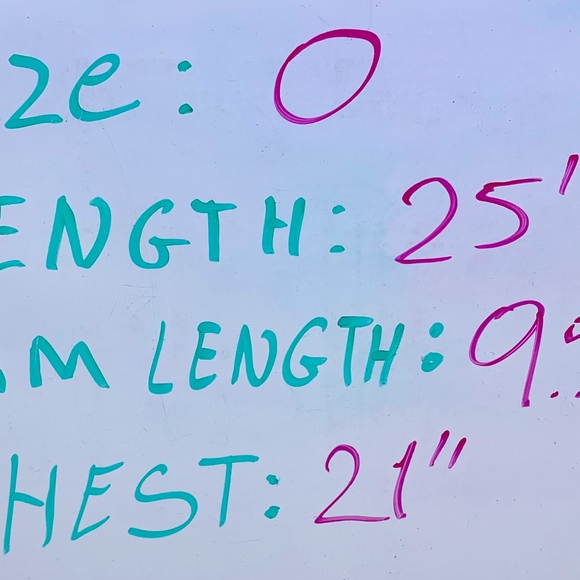 ze: 0
ENGTH: 25"
M LENGTH: 9.
HEST: 21"